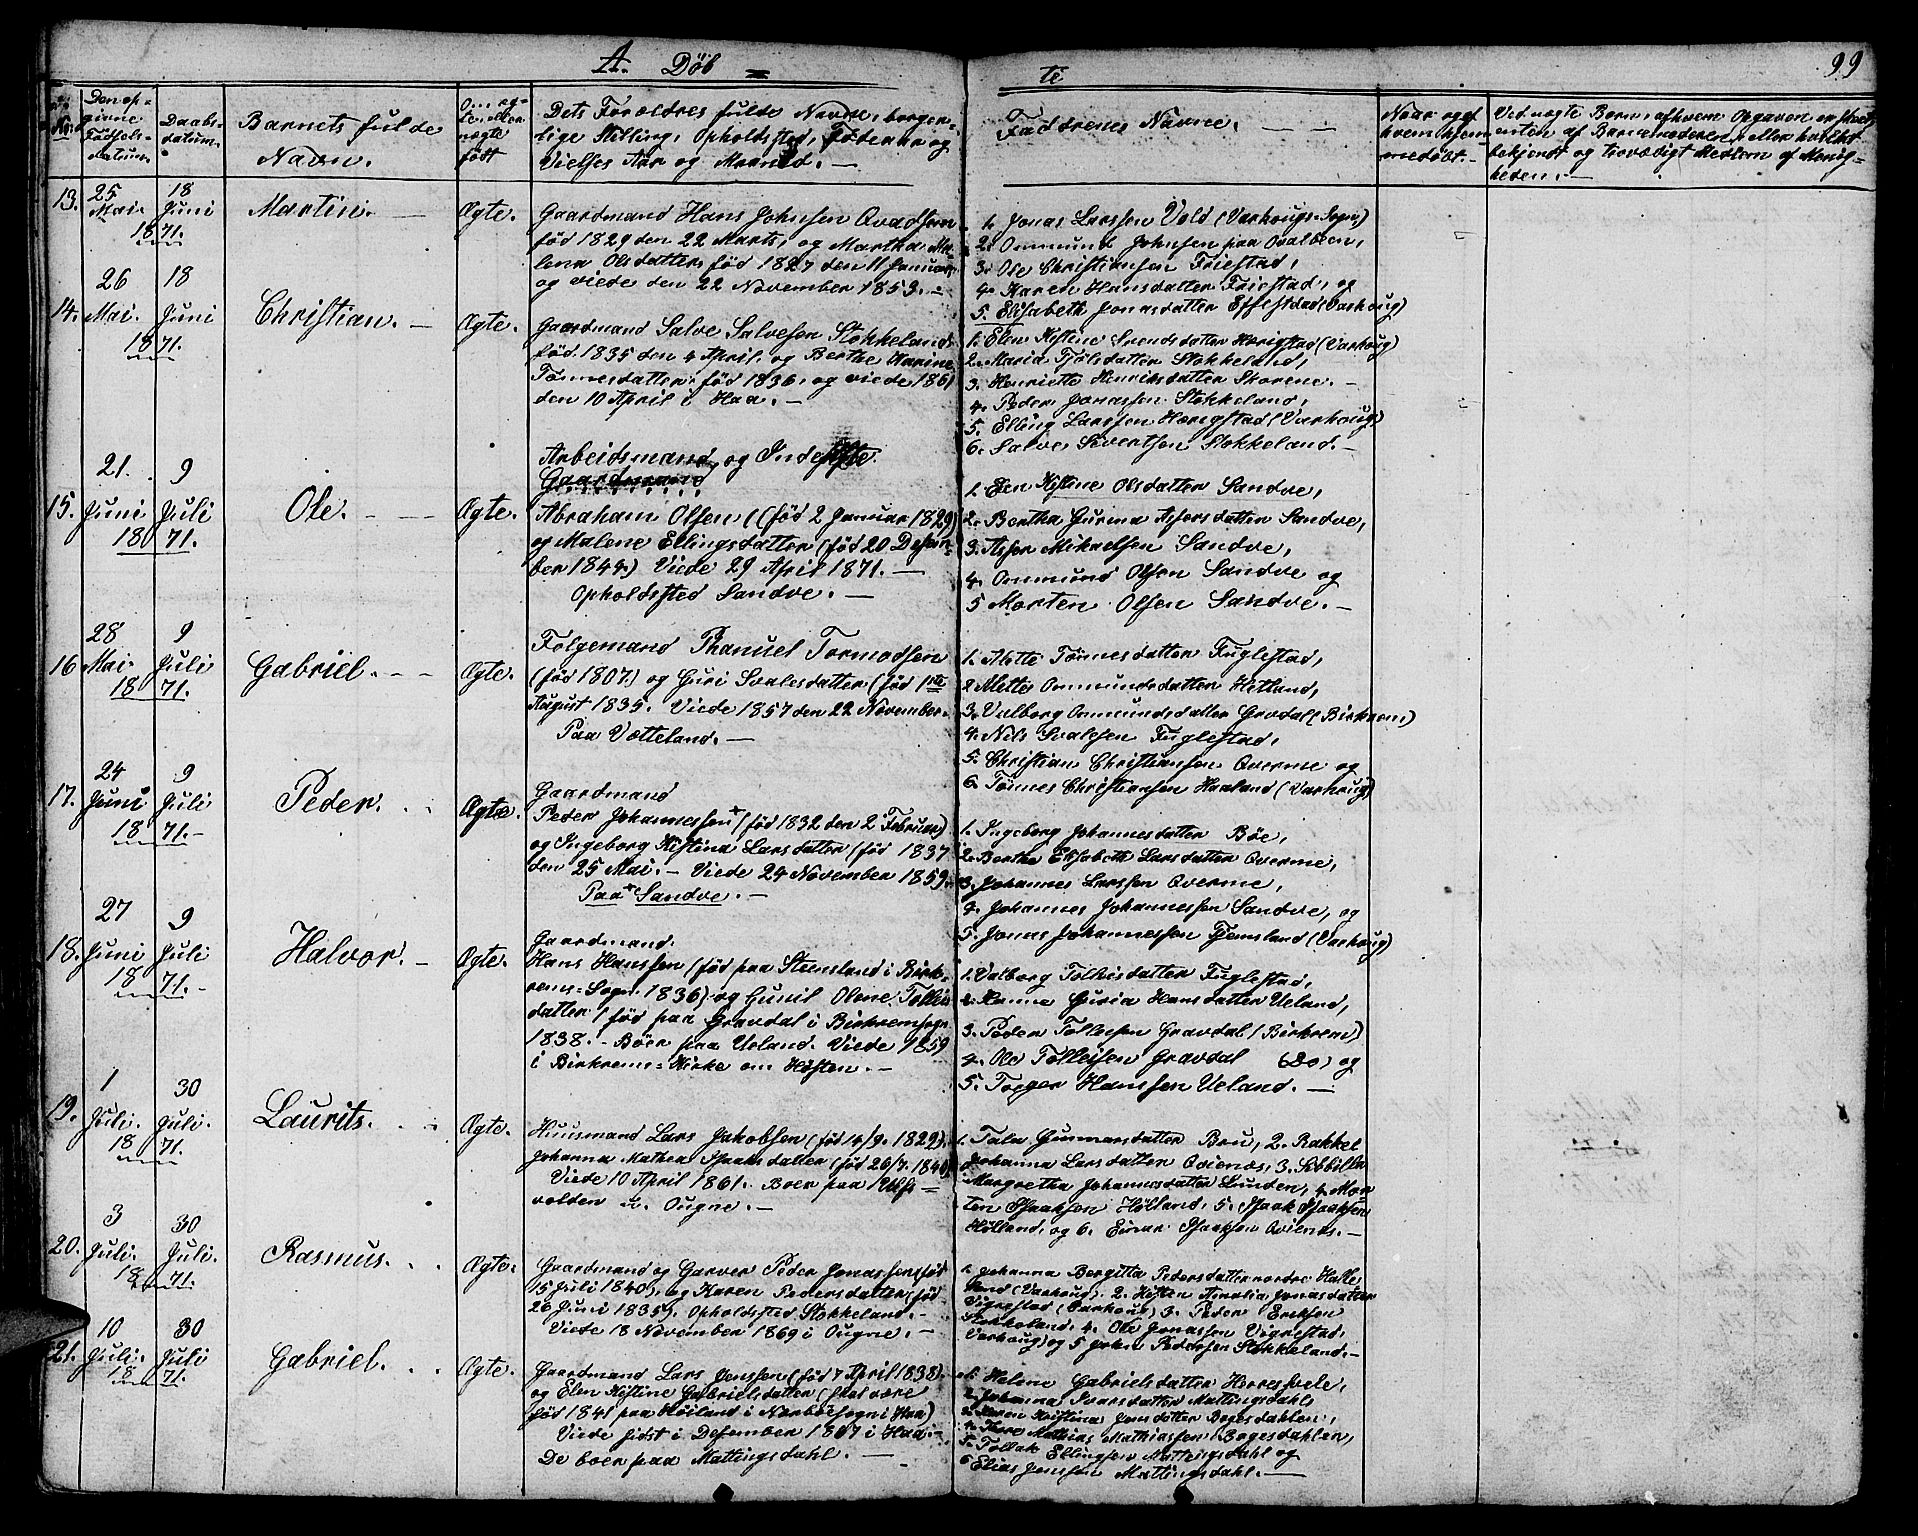 A. Døb =
te
99
No.
Den op-
givne
Fødsels-
datum.
Daabs-
datum.
Barnets fulde
Navn.
født
Dets Forældres fulde Navne, borger-
lige Stilling, Opholdssted, Fødeaar og
Vielses Aar og Maaned. —
Faddrenes Navne. — —
Naar og af
hvem hjem-
medøbt. —
Ved uægte Børn, afhvem Opgaven er skeet
enten af Barnemoderen, eller hvilket
bekjendt og troværdigt Medlem af Menig-
heden. —
13.
25
Mai.
18
Juni
1871.
Martin. —
Ægte.
Gaardmand Hans Johnsen Qvadsem
født 1829 den 22 Marts, og Martha Ma-
lena Olsdatter, født 1827 den 11 Januar,
og viede den 22 November 1853. —
1. Jonas Larssen Vold (Varhougs-Sogn)
2. Ommund Johnsen paa Qvalbein,
3. Ole Christiansen Friestad,
4. Karen Hansdatter Friestad, og
5. Elisabeth Jonasdatter (Varhoug)
14.
26
Mai.
18
Juni
1871.
Christian. —
Ægte.
Gaardmand Salve Salvesen Stokkeland
født 1835 den 4 April, og Berthe Karine
Tønnesdatter, født 1836, og viede 1861
den 10 April i Haa. —
1. Elen Kistine Svendsdatter Harigstad (Varhoug)
2. Maria Tjølsdatter Stokkeland,
3. Henriette Henriksdatter Skorene. —
4. Peder Jonassen Stokkeland,
5. Elling Larssen Hærigstad (Varhoug)
6. Salve Sivertsen Stokkeland. —
15.
21.
Juni
9
Juli
1871.
Ole. — —
Ægte.
Arbeidsmand og Inderste
Gaardmand
Abraham Olsen ((født 2 Januar 1829)
og Malene Ellingsdatter (født 20 Desem-
ber 1844) Viede 29 April 1871. —
Opholdssted Sandve. —
1. Elen Kistine Olsdatter Sandve,
2. Bertha Gurina Assersdatter Sandve,
3. Asser Mikaelsen Sandve,
4. Ommund Olsen Sandve og
5 Morten Olsen Sandve. —
16
28
Mai.
9
Juli
1871.
Gabriel. — —
Ægte.
Følgemand Thanuel Tormodsen
(født 1807) og Guri Svalesdatter (født 1ste
August 1835. Viede 1857 den 22 November.
Paa Vætteland. —
1. Mette Tønnesdatter Fuglestad,
2 Mette Ommundsdatter Hetland,
3. Valborg Ommundsdatter Gravdal (Birkrem)
4. Nils Svalesen Fuglestad,
5. Christian Christiansen Qverme og
6. Tønnes Christiansen Haaland (Varhoug)
17.
24
Juni
9
Juli
1871. —
Peder.
Ægte.
Gaardmand
Peder Johannessen (født 1832 den 2 Februar)
og Ingeborg Kistina Larsdatter (født 1837
den 25 Mai. — Viede 24 November 1859.
Paa Sandve. —
1. Ingeborg Johannesdatter Bøe,
2. Bertha Elisabeth Larsdatter Qverme,
3. Johannes Larssen Qverme,
4. Johannes Johannessen Sandve, og
5. Jonas Johannessen Tjemsland (Varhoug)
18.
27
Juni
9
Juli
1871. —
Halvor. —
Ægte.
Gaardmand.
Hans Hanssen (født paa Steensland i Birk-
rems-Sogn 1836) og Gunil Olene Tollis-
datter (født paa Gravdal i Birkremsogn
1838. — Boer paa Ueland. Viede 1859
i Birkrems-Kirke om Høsten. —
1. Valborg Tollisdatter Fuglestad,
2. Hanna Guria Hansdatter Ueland,
3. Peder Tolleisen Gravdal (Birkrem)
4. Ole Tolleisen Gravdal (do) og
5. Torger Hanssen Ueland. —
19.
1
Juli.
30
Juli.
1871.
Laurits.
Ægte.
Huusmand Lars Jakobsen (født 14/9. 1829),
Johanna Mathea Isaaksdatter (født 26/7. 1840)
Viede 10 April 1861. Boer paa
volden u. Ougne. —
1. Tala Gunnarsdatter Bru, 2. Rakkel
Johanna Larsdatter Qvienæs, 3. Sibbilla
Margretha Johannesdatter Lunden, 4. Mor-
ten Isaaksen Hølland, 5. Isaak Isaaksen
Hølland, og 6. Einar Isaaksen Qvienæs. —
20.
3
Juli.
30
Juli.
1871.
Rasmus.
Ægte.
Gaardmand og Garver Peder Jonassen (født
15 Juli 1840), og Karen Pedersdatter (født
26 Juni 1835). Opholdssted Stokkeland. —
Viede 18 November 1869 i Ougne. —
1. Johanna Bergitta Pedersdatter nordre Halle
land (Varhoug). 2. Kisten Amalia Jonasdatter
Vigrestad (Varhoug) 3. Peder Eriksen
Stokkeland, 4. Ole Jonassen Vigrestad,
Varhoug) og 5 John Pedersen Stokkeland. —
21.
10
Juli.
30
Juli
1871.
Gabriel.
Ægte.
Gaardmand Lars Jenssen (født 7 April 1838)
og Elen Kistine Gabrielsdatter (skal være
født 1841 paa Høiland i Nærbøesogn i Haa)
Viede sidst i Desember 1867 i Haa. —
De boer paa Mattingsdahl. —
1. Helene Gabrielsdatter Herreskele,
2. Johanna Ivarsdatter Mattingsdahl
3. Karen Kristina Jonsdatter Bogesdahlen,
4. Thore Mathias Mathiassen (Bogesdahlen,
5. Tollak Ellingsen Mattingsdahl og
6 Elias Jenssen Mattingsdahl. —